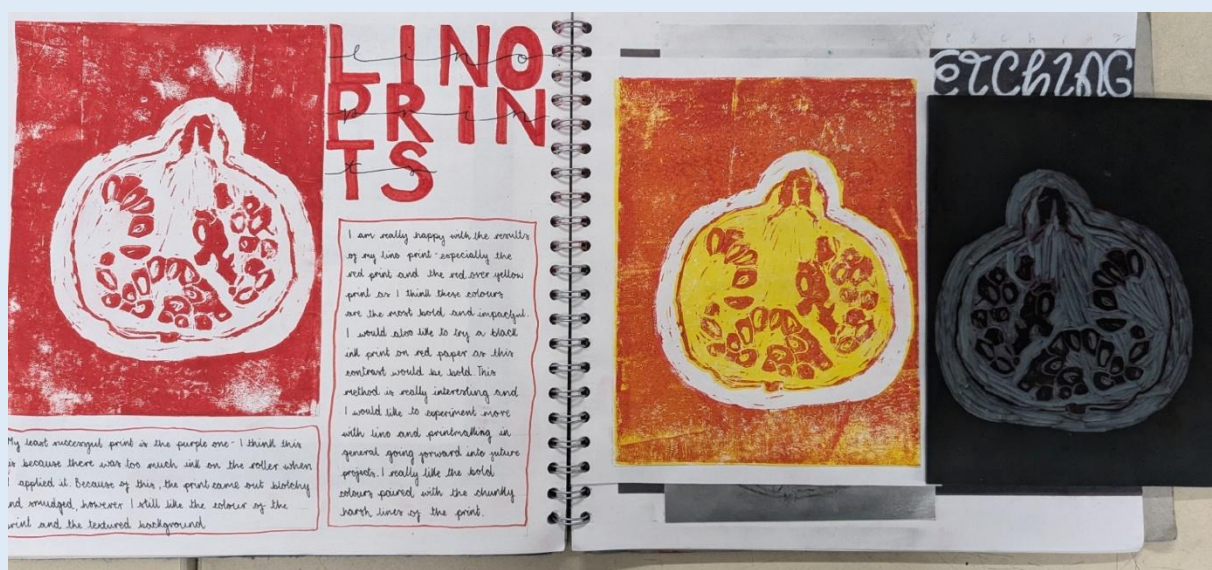 LINO
PRIN
TS
lino
prin
ts
I am really happy with the results
of my lino print - especially the
red print and the red over yellow
print as I think these colours
are the most bold and impactful.
I would also like to try a black
ink print on red paper as this
contrast would be bold. This
method is really interesting and
I would like to experiment more
with lino and printmaking in
general going forward into future
projects. I really like the bold
colours paired with the chunky
harsh lines of the print.
My least successful print is the purple one - I think this
is because there was too much ink on the roller when
I applied it. Because of this, the print came out blotchy
and smudged, however I still like the colour of the
print and the textured background
ETCHING